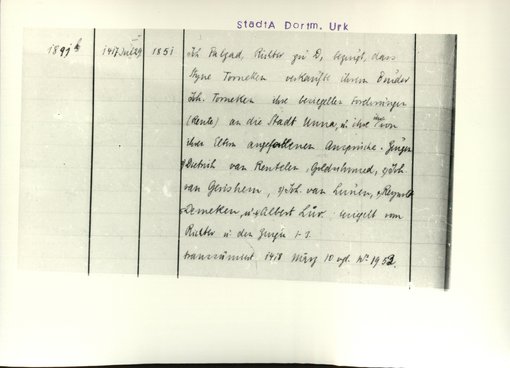 StadtA Dortm. Urk
1891 b 1417 Juli 29 1851 Joh. Palzad, Richter zu D., bezeugt, dass
Styne Torneken verkaufte ihrem Bruder
Joh. Torneken ihre beweglichen Forderungen
(Rente) an die Stadt Unna, u. ihre von
ihren Eltern angefallenen Ansprüche. Zeugen
Dietrich van Rentelen, Goldschmied, Joh.
van Gerishem, Joh. van Lünen, Reynolt
Demeken, u. Albert Lür. siegelt vom
Richter u. den Zeugen 1-3.
transsumiert 1418 März 10 vgl. No 1952.